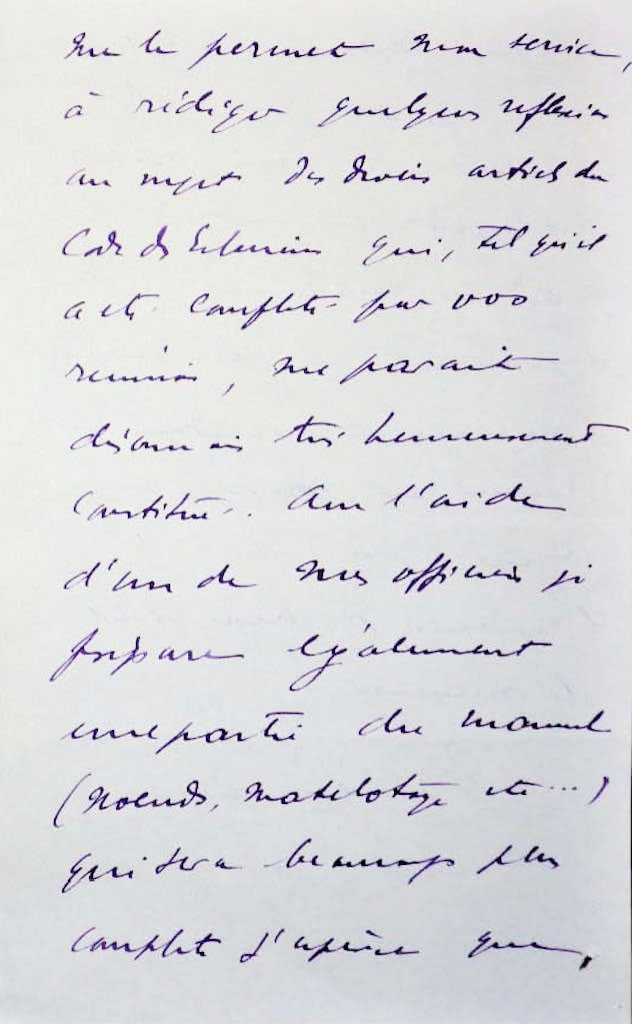 me le permet mon service,
à rédiger quelques réflexions
au sujet des divers articles du
Code de l'Eclaireur qui, tel qu'il
a été complété par vos
réunions, me paraît
désormais très heureusement
constitué. Avec l'aide
d'un de mes officiers je
prépare également
une partie du manuel
(Noeuds, matelotage etc...)
qui sera beaucoup plus
complète j'espère que